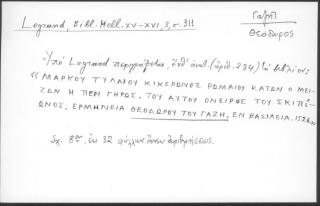 Γαζῆ
Θεόδωρος
Legrand, Bibl. Hell. XV-XVI, 3, σ. 311
Ὑπὸ Legrand περιγράφεται, ὑπ' ἀριθ. (ἀριθ. 294) τὸ βιβλίον:
«ΜΑΡΚΟΥ ΤΥΛΛΙΟΥ ΚΙΚΕΡΩΝΟΣ ΡΩΜΑΙΟΥ ΚΑΤΩΝ Ο ΜΕΙ-
ΖΩΝ Η ΠΕΡΙ ΓΗΡΩΣ. ΤΟΥ ΑΥΤΟΥ ΟΝΕΙΡΟΣ ΤΟΥ ΣΚΙΠΙ-
ΩΝΟΣ, ΕΡΜΗΝΕΙΑ ΘΕΟΔΩΡΟΥ ΤΟΥ ΓΑΖΗ, ΕΝ ΒΑΣΙΛΕΙΑ.
Σχ. 8ον, ἐκ 32 φύλλων ἄνευ ἀριθμήσεως.